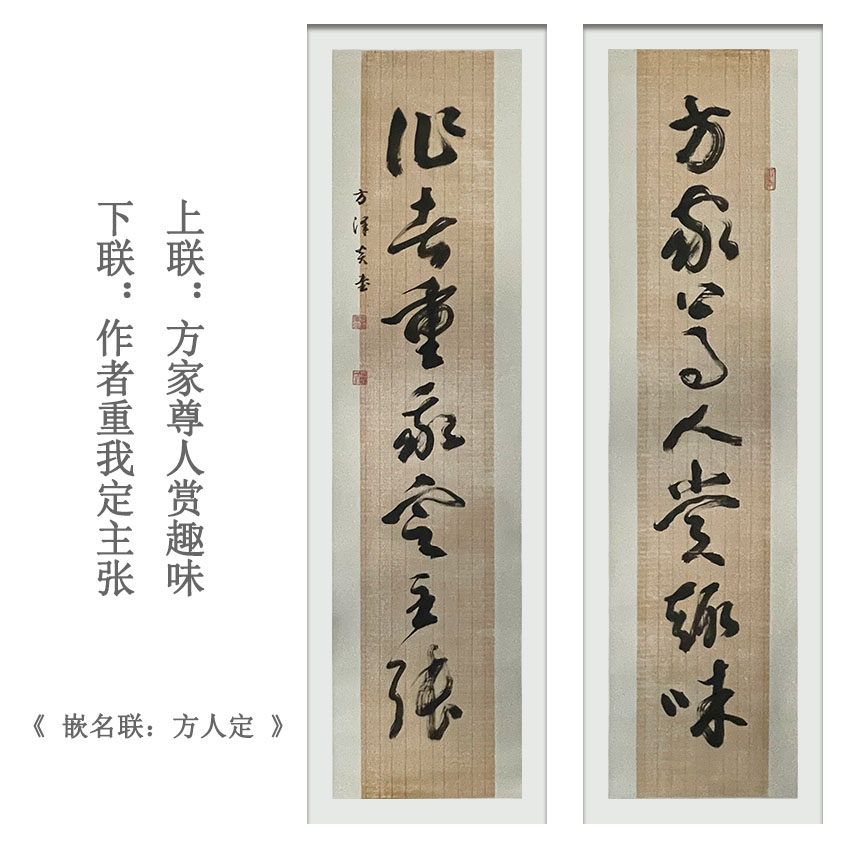 上联：方家尊人赏趣味
下联：作者重我定主张
《 嵌名联：方人定 》
方家尊人赏趣味
作者重我定主张